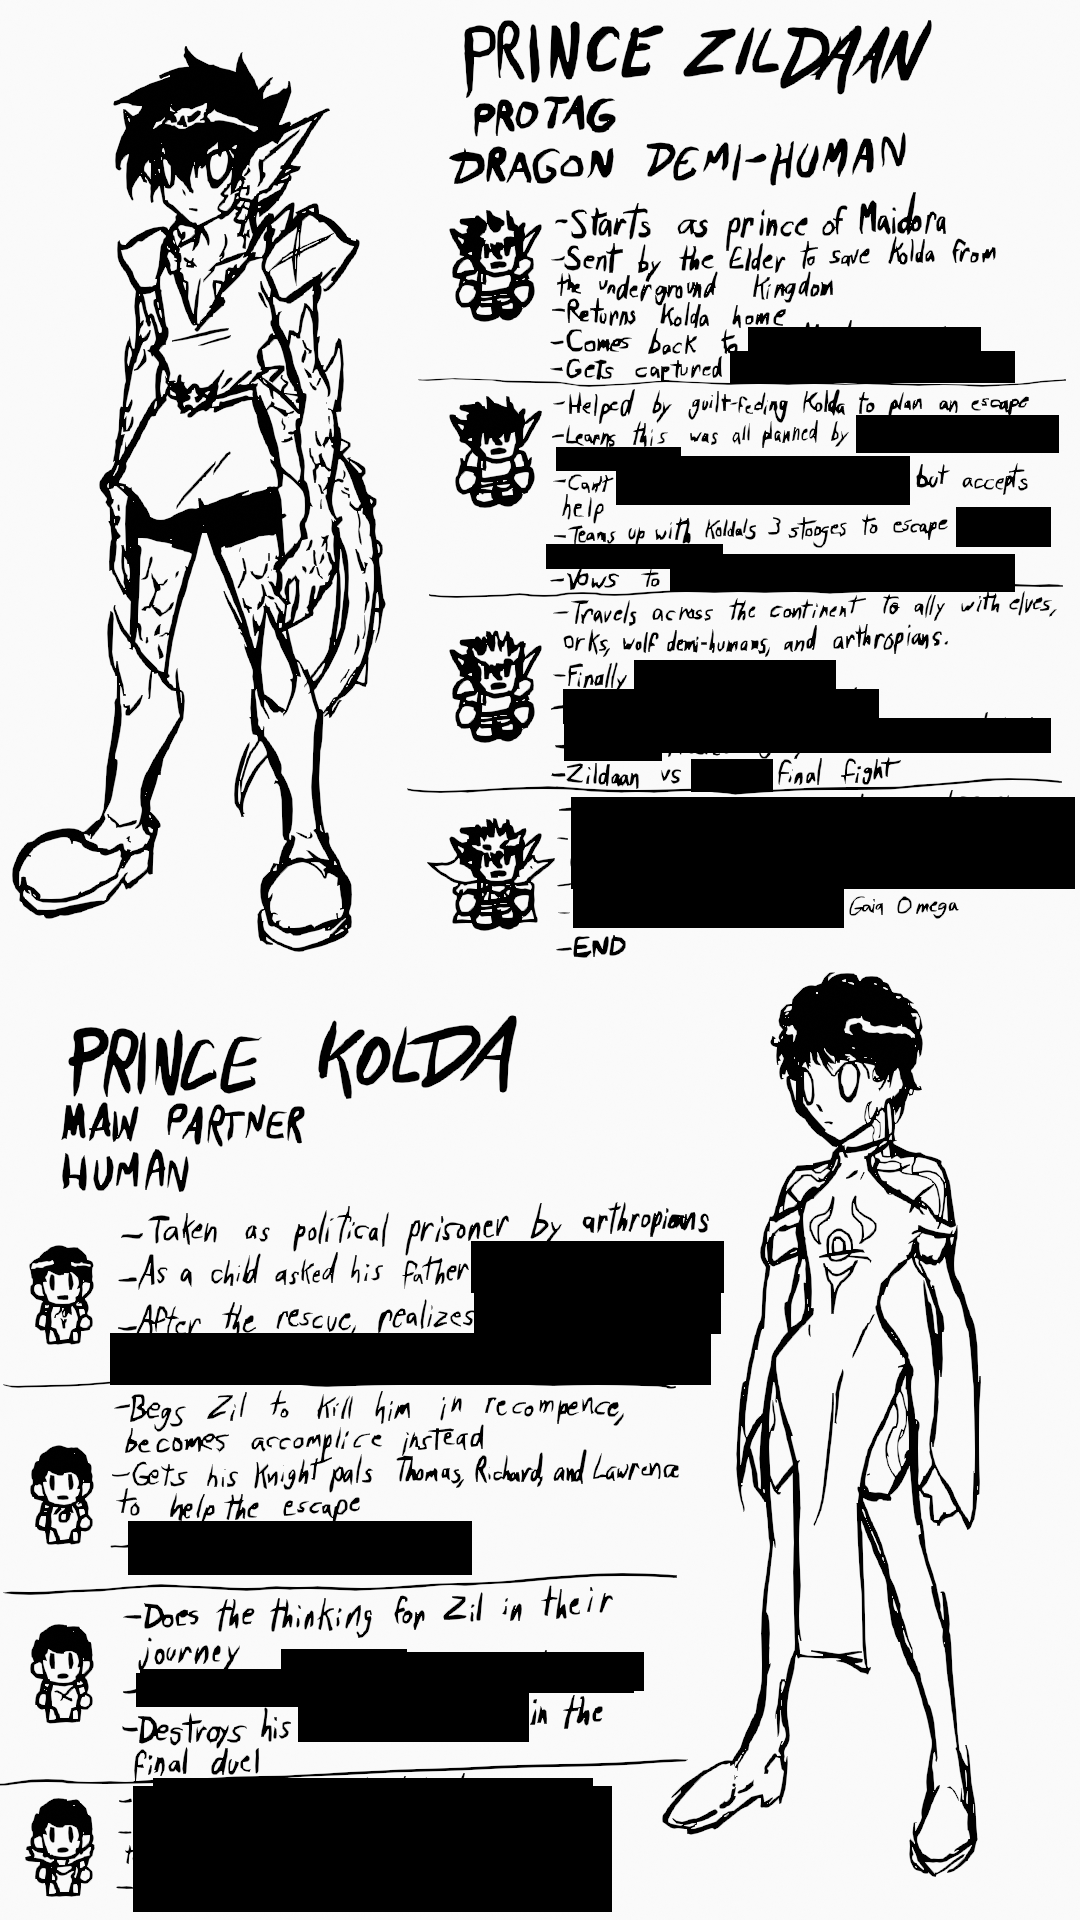 PRINCE ZILDAAN
PROTAG
DRAGON DEMI-HUMAN
-Starts as prince of Maidora
-Sent by the Elder to save Kolda from
the underground Kingdom
-Returns Kolda home
-Comes back to
-Gets captured
-Helped by guilt-feding Kolda to plan an escape
-Learns this was all planned by
-Can't but accepts
help
-Teams up with Kolda's 3 stooges to escape
-Vows to
-Travels across the continent to ally with elves,
orks, wolf demi-humans, and arthropians.
-Finally
-Zildaan vs final fight
Gaia Omega
-END
PRINCE KOLDA
MAIN PARTNER
HUMAN
-Taken as political prisoner by arthropians
-As a child asked his father
-After the rescue, realizes
-Begs Zil to kill him in recompence,
becomes accomplice instead
-Gets his Knight pals Thomas, Richard, and Lawrence
to help the escape
-Does the thinking for Zil in their
journey
-Destroys his in the
final duel